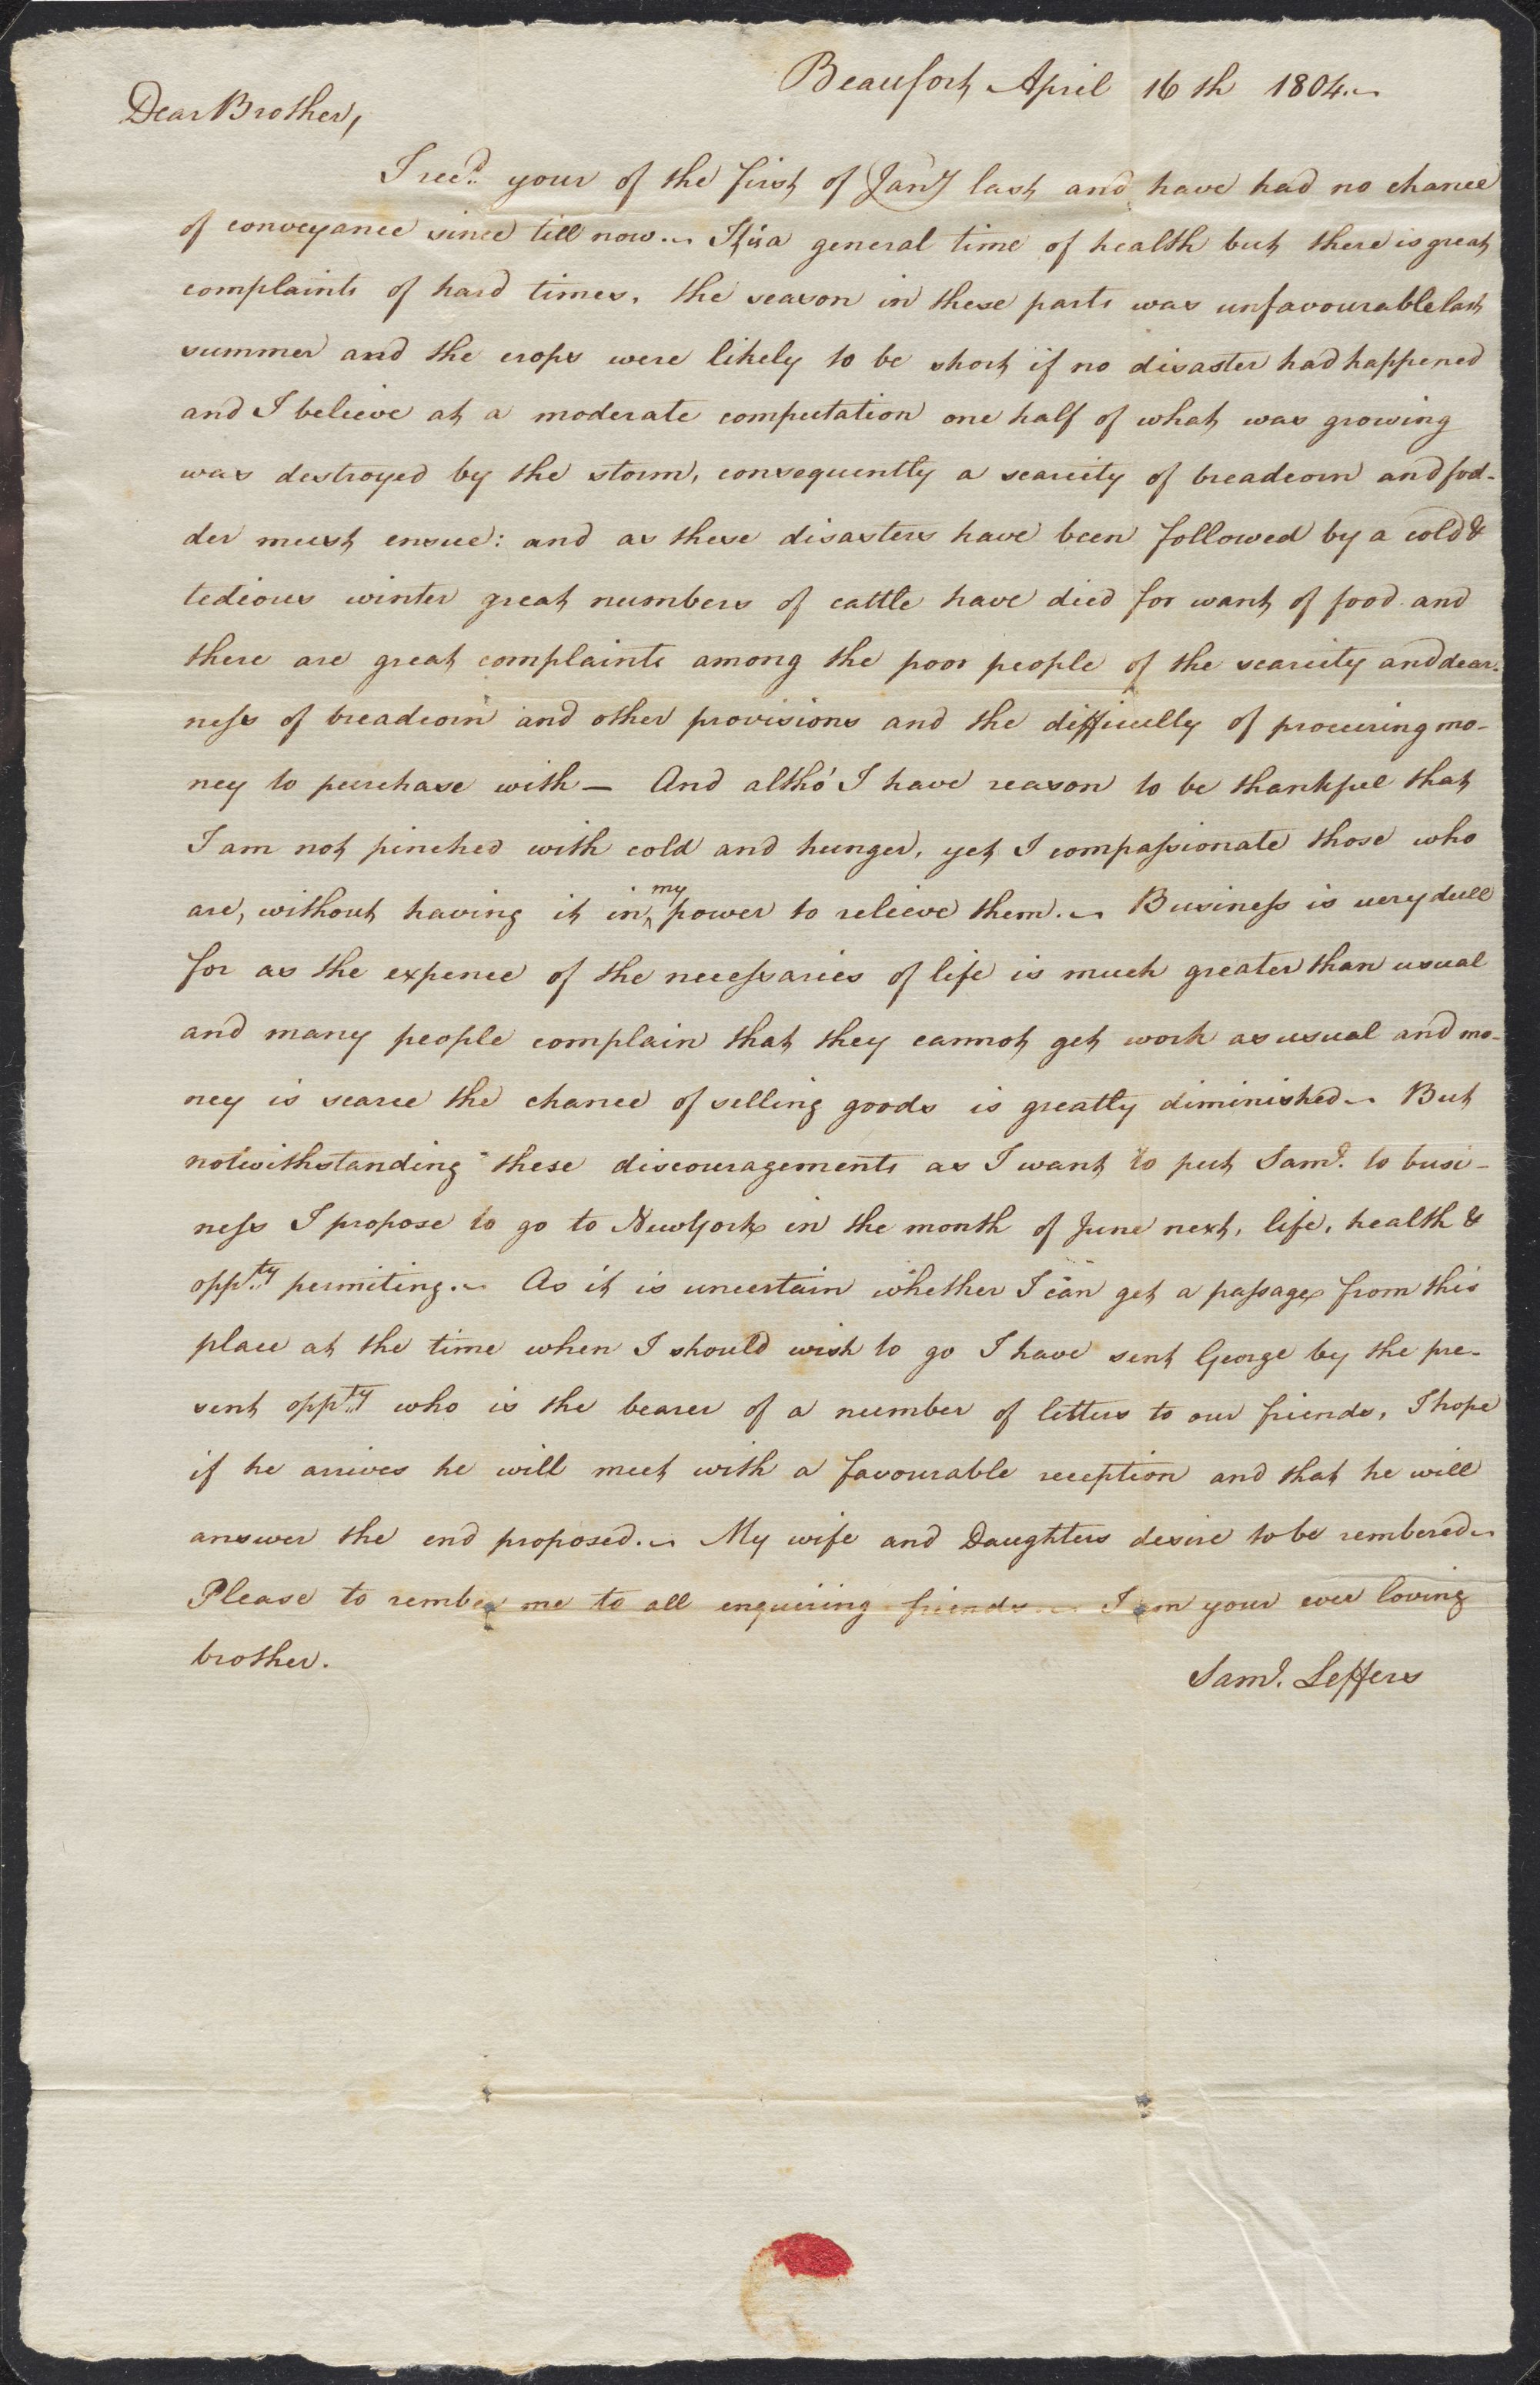 Beaufort April 16th 1804.
Dear Brother,
I recd. your of the first of Jany last and have had no chance
of conveyance since till now. It is a general time of health but there is great
complaints of hard times, the season in these parts was unfavourable last
summer and the crops were likely to be short if no disaster had happened
and I believe at a moderate computation one half of what was growing
was destroyed by the storm, consequently a scarcity of breadcorn and fod-
der must ensue: and as these disasters have been followed by a cold &
tedious winter great numbers of cattle have died for want of food and
there are great complaints among the poor people of the scarcity and dear-
ness of breadcorn and other provisions and the difficulty of procuring mo-
ney to purchase with — And altho' I have reason to be thankful that
I am not pinched with cold and hunger, yet I compassionate those who
are, without having it in my power to relieve them. Business is very dull
for as the expence of the necessaries of life is much greater than usual
and many people complain that they cannot get work as usual and mo-
ney is scarce the chance of selling goods is greatly diminished. But
notwithstanding these discouragements as I want to put Saml. to busi-
ness I propose to go to New York in the month of June next, life, health &
oppty. permiting. As it is uncertain whether I can get a passage from this
place at the time when I should wish to go I have sent George by the pre-
sent oppty. who is the bearer of a number of letters to our friends, I hope
if he arrives he will meet with a favourable reception and that he will
answer the end proposed. My wife and Daughters desire to be rembered
Please to rember me to all enquiring friends. I am your ever loving
brother.
Saml. Leffers